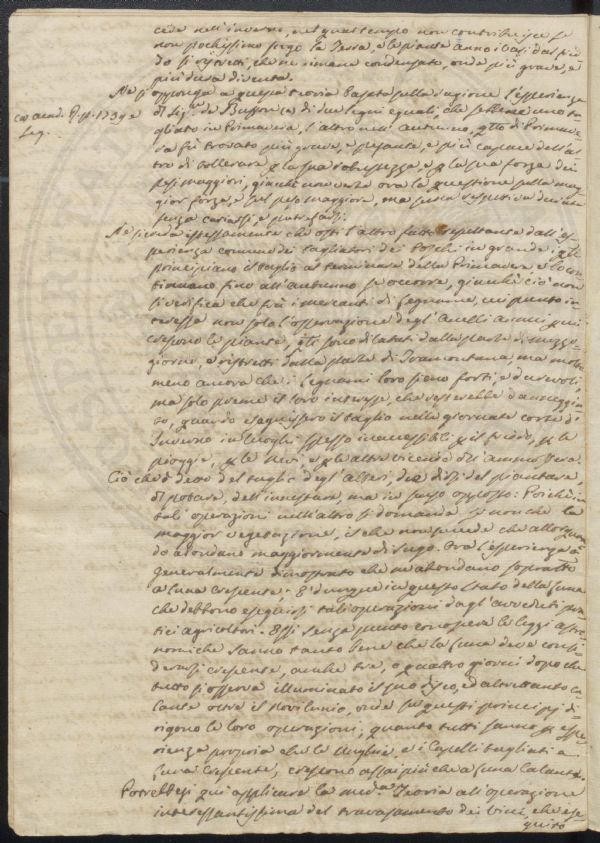 cede nell'inverno, nel qual tempo non contribuisce se
non pochissimo sugo la Terra, e le piante anno i vasi dal fred
do sì ristretti, che ne rimane condensato, onde più grave, e
più dura diventa.
Ne si opponga a questa teoria basata sulla ragione l'esperienza
(a) acad. 1739 e
seg.
di Sig.r de Buffon (a) di due legni eguali, che sebbene uno ta
gliato in Primavera, l'altro nell'autunno, qllo di Primave
ra fù trovato più grave, e pesante, e più capace dell'al
tro di tollerare p la sua robustezza, e p la sua forza dei
pesi maggiori, giacchè non verte ora la questione sulla mag
gior forza, e sul peso maggiore, ma
senza cariarsi, e putrefarsi.
Ne si creda istessamente che osti l'altro fatto risultante dall'es
perienza comune dei tagliatori dei Boschi in grande, i qli
principiano il taglio al terminare della Primavera e lo con
tinuano fino all'autunno se occorre, giacchè ciò non
si verifica che frà i mercanti di legname, cui punto in
teressa non solo l'osservazione degl'anelli annui p cui
crescono le piante, qli sono dilatati dalla parte di mezzo
giorno, e ristretti dalla parte di Tramontana, ma molto
meno ancora che i legnami loro sieno forti, e durevoli,
ma solo preme il loro interesse, che resterebbe danneggia
to, quando eseguissero il taglio nelle giornate corte d'
Inverno in luoghi spesso inaccessibili p il freddo, p le
pioggie, p le nevi, e p le altre vicende dell'atmosfera.
Ciò che è detto del taglio degl'alberi, dee dirsi del piantare,
di potare, dell'innestare, ma in senso opposto: Poichè in
tali operazioni nell'altro si domanda se non che la
maggior vegetazione, il che non succede che allor quan
do abondano maggiormente di sugo. Ora l'esperienza à
generalmente dimostrato che ne abondano sopratutto
a Luna crescente: E' dunque in questo stato della Luna
che debbono eseguirsi tali operazioni dagl'avveduti pra
tici agricoltori. Essi senza punto conoscere le leggi astro
nomiche sanno tanto bene che la Luna deve consi
derarsi crescente, anche tre, o quattro giorni dopo che
tutto si osserva illuminato il suo disco, ed altrettanto ca
lante oltre il Novilunio, onde su questi principj di
rigono le loro operazioni, quanto tutti sanno p espe
rienza propria che le unghie e i capelli tagliati a
Luna crescente, crescono assai più che a Luna calante.
Potrebbesi quì applicare la med.a Teoria all'operazione
interessantissima del travasamento dei vini, che ese
guito